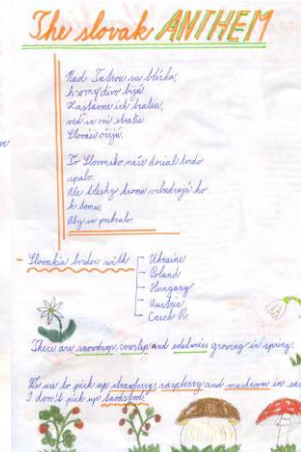 The slovak ANTHEM
Nad Tatrou sa blýska,
hromy divo bijú.
Zastavme ich bratia,
veď sa oni stratia
Slováci ožijú.
To Slovensko naše doriaľ tvrdo
spalo.
Ale blesky hromu vzbudzujú ho
k tomu,
Aby sa prebralo.
- Slovakia border with
Ukraine
Poland
Hungary
Austria
Czech Re
There are snowdrop, cowslip and edelweiss growing in spring.
We use to pick up strawberry, raspberry and mushroom in
I don't pick up toadstool.